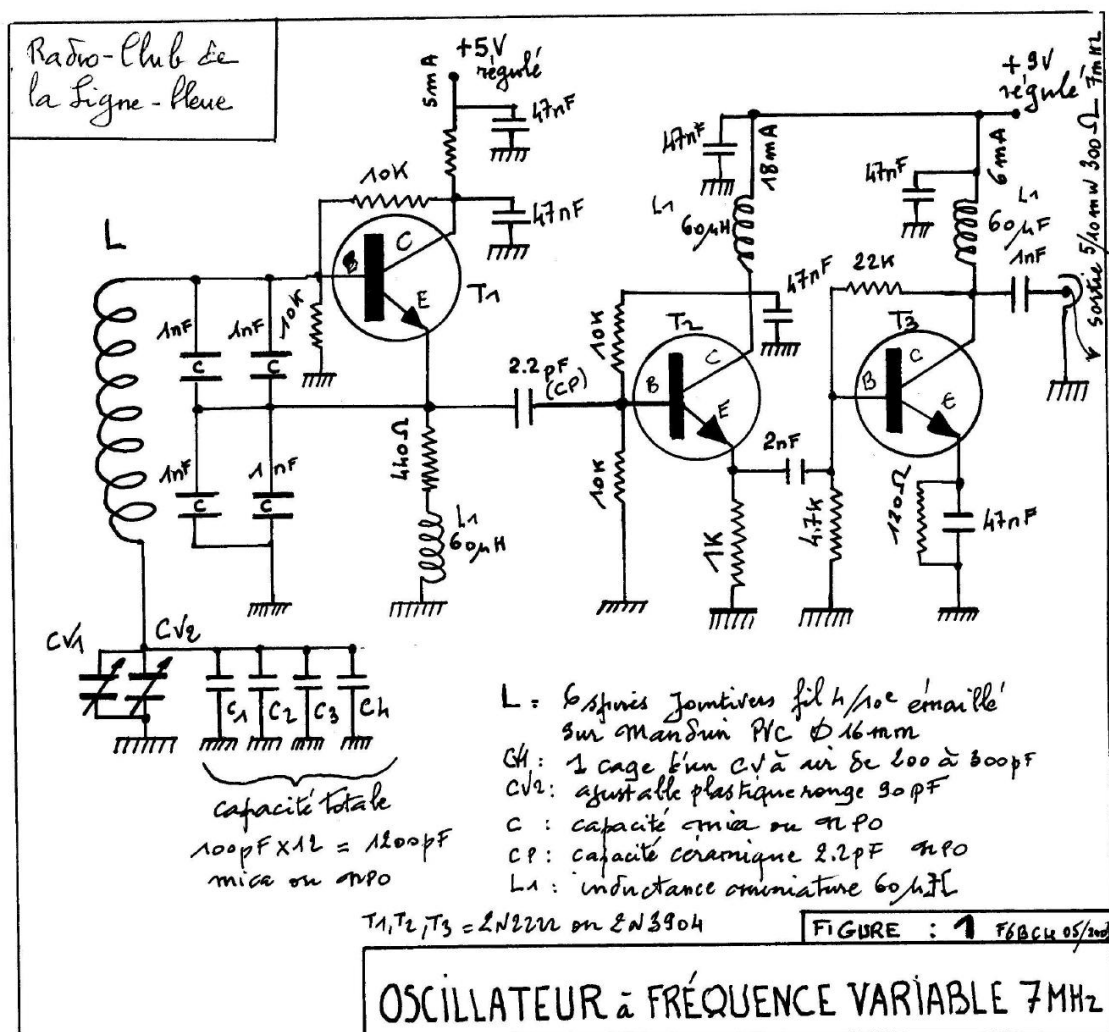 Radio-Club de
la Ligne-bleue
+5V
régulé
5mA
47nF
10K
47nF
L
1nF
1nF
10K
B
C
E
T1
C
C
1nF
1nF
C
C
440Ω
L1
60µH
2.2pF
(CP)
+9V
régulé
47nF
18mA
L1
60µH
47nF
6mA
L1
60µF
1nF
Sortie 5/10mW 300Ω 7mHz
47nF
22K
10K
T2
B
C
E
10K
2nF
1K
T3
B
C
E
4.7K
120Ω
47nF
CV1
CV2
C1
C2
C3
C4
capacité totale
100pF X 12 = 1200pF
mica ou NPO
L = 6 spires jointives fil 4/10e émaillé
sur mandrin PVC Ø 16mm
1 cage d'un CV à air de 200 à 300pF
CV2: ajustable plastique rouge 90pF
C : capacité mica ou NPO
CP: capacité céramique 2.2pF NPO
L1: inductance miniature 60µH
T1, T2, T3 = 2N2222 ou 2N3904
FIGURE : 1
OSCILLATEUR à FRÉQUENCE VARIABLE 7MHz